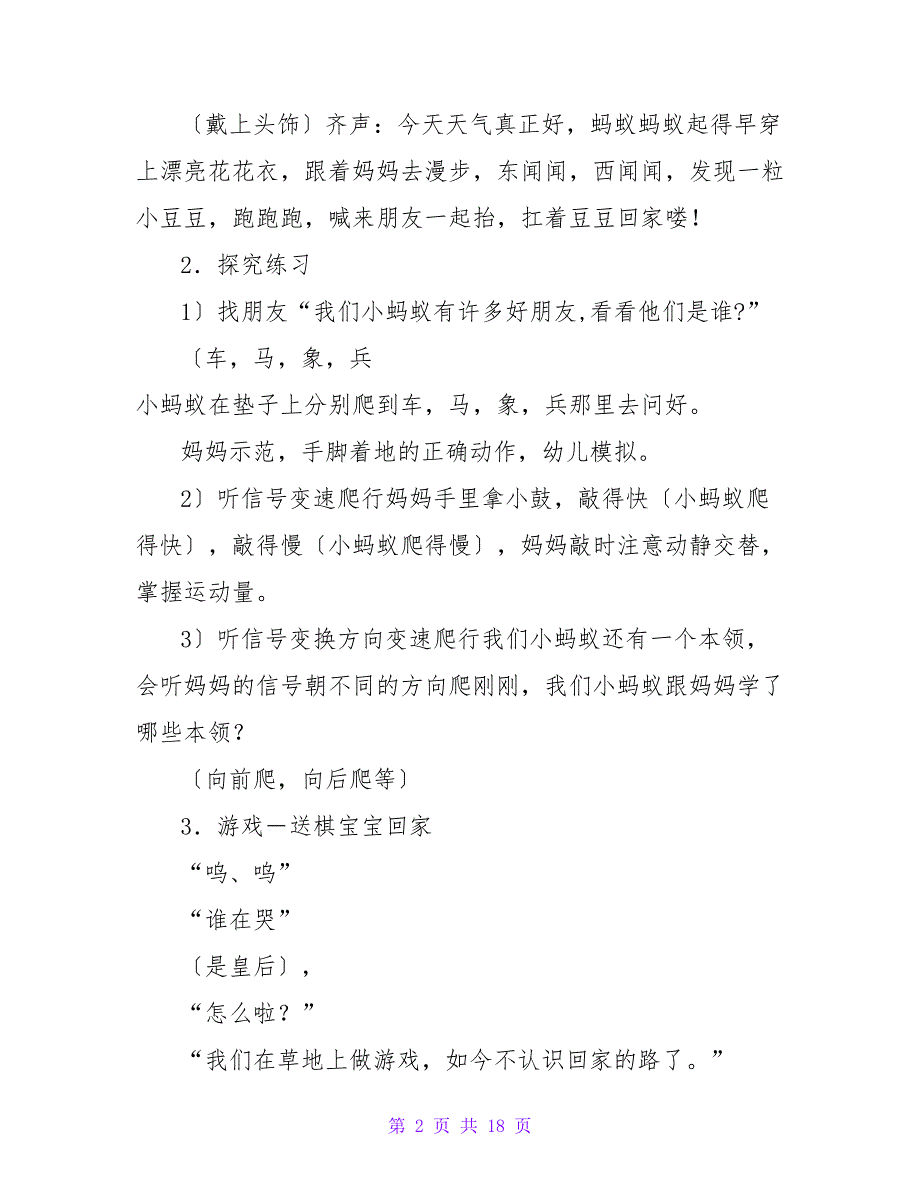 〔戴上头饰〕齐声：今天天气真正好，蚂蚁蚂蚁起得早穿
上漂亮花花衣，跟着妈妈去漫步，东闻闻，西闻闻，发现一粒
小豆豆，跑跑跑，喊来朋友一起抬，扛着豆豆回家喽！
2．探究练习
1〕找朋友“我们小蚂蚁有许多好朋友,看看他们是谁?”
〔车，马，象，兵
小蚂蚁在垫子上分别爬到车，马，象，兵那里去问好。
妈妈示范，手脚着地的正确动作，幼儿模拟。
2〕听信号变速爬行妈妈手里拿小鼓，敲得快〔小蚂蚁爬
得快〕，敲得慢〔小蚂蚁爬得慢〕，妈妈敲时注意动静交替，
掌握运动量。
3〕听信号变换方向变速爬行我们小蚂蚁还有一个本领，
会听妈妈的信号朝不同的方向爬刚刚，我们小蚂蚁跟妈妈学了
哪些本领？
〔向前爬，向后爬等〕
3．游戏－送棋宝宝回家
“呜、呜”
“谁在哭”
〔是皇后〕，
“怎么啦？”
“我们在草地上做游戏，如今不认识回家的路了。”
第 2 页 共 18 页